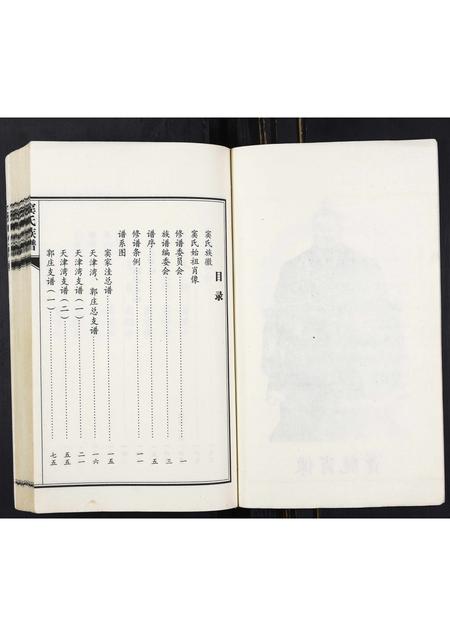 目录
窦氏族徽
窦氏始祖肖像
修谱委员会……一
族谱编委会……三
谱序……五
修谱条例……一一
谱系图
窦家洼总谱……一五
天津湾、郭庄总支谱……一六
天津湾支谱(一)……二一
天津湾支谱(二)……五五
郭庄支谱(一)……七五
窦氏族谱